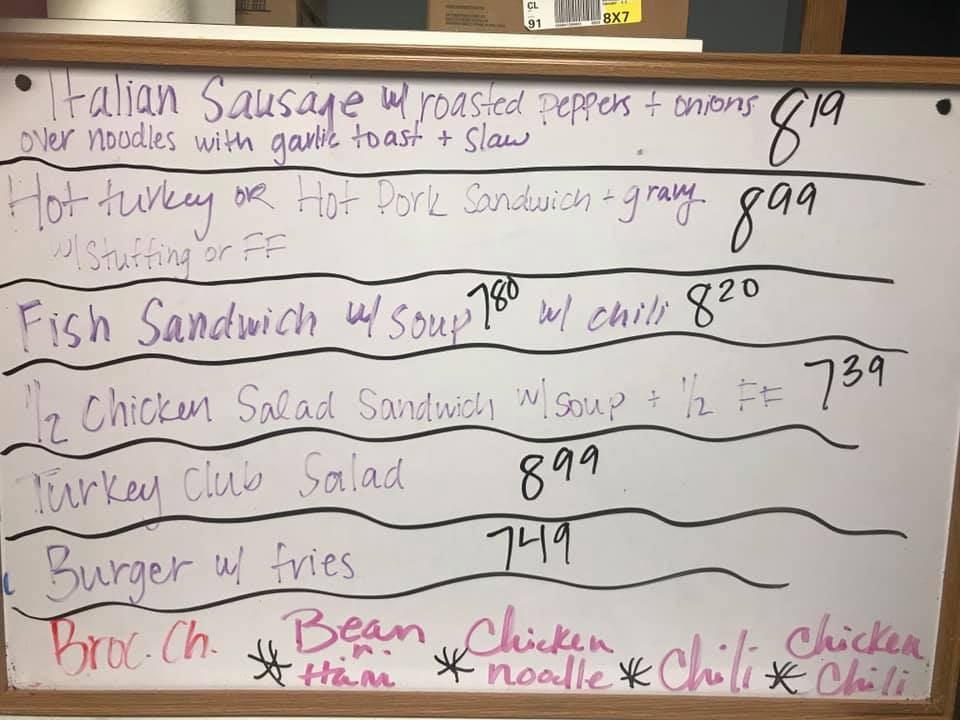 CL
91
8X7
Italian Sausage w/ roasted peppers + onions 8 19
over noodles with garlic toast + slaw
Hot turkey OR Hot Pork Sandwich + gravy 8 99
w/ Stuffing or FF
Fish Sandwich w/ soup 7 80 w/ chili 8 20
1/2 Chicken Salad Sandwich w/ soup + 1/2 FF 7 39
Turkey Club Salad 8 99
Burger w/ fries 7 49
Broc. Ch. * Bean n. Ham * Chicken noodle * Chili * Chicken Chili